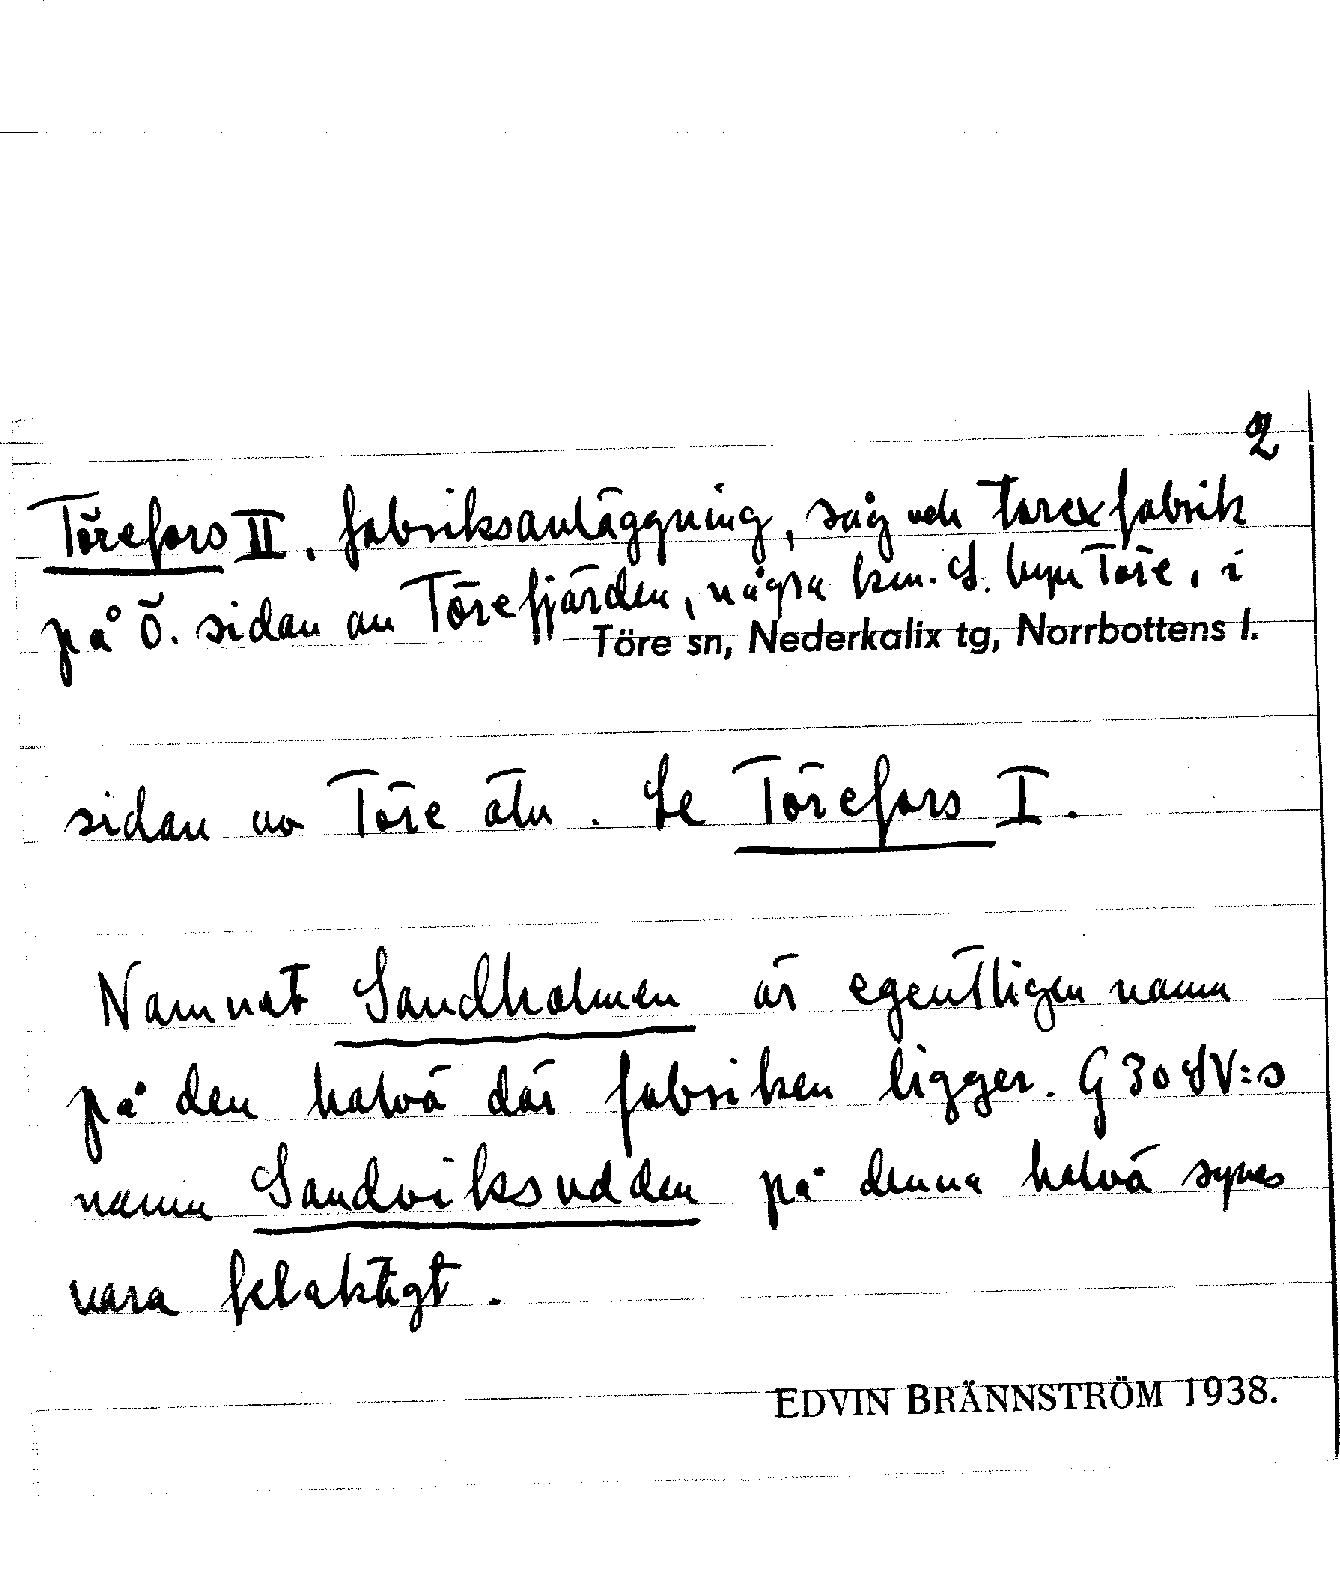 2
Törefors II, fabriksanläggning, såg och torexfabrik
på Ö. sidan av Törefjärden, några km. S. byn Töre, i
Töre sn, Nederkalix tg, Norrbottens l.
sidan av Töre älv. Se Törefors I.
Namnet Sandholmen är egentligen namn
på den halvö där fabriken ligger. G 30 SV:s
namn Sandviksudden på denna halvö synes
vara felaktigt.
EDVIN BRÄNNSTRÖM 1938.